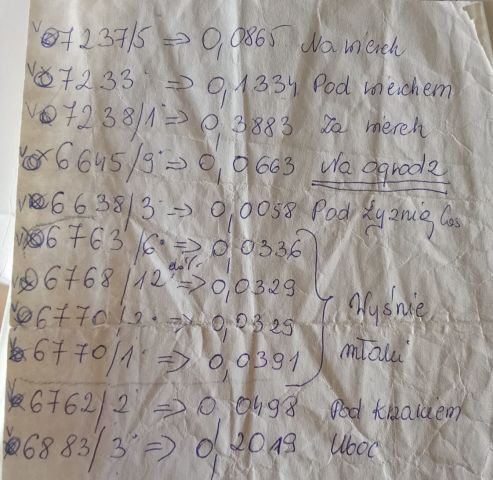 7237/5 => 0,0865 Na wierch
7233 => 0,1334 Pod wierchem
7238/1 => 0,3883 Za wierch
6645/9 => 0,0663 Na ogrodz
6638/3 => 0,0058 Pod Łyznią las
6763/6 => 0,0336
6768/12 => 0,0329
6770/2 => 0,0329 Wyśnie
6770/1 => 0,0391 młaki
6762/2 => 0 0498 Pod Krzakiem
6883/3 => 0,2019 Uboc